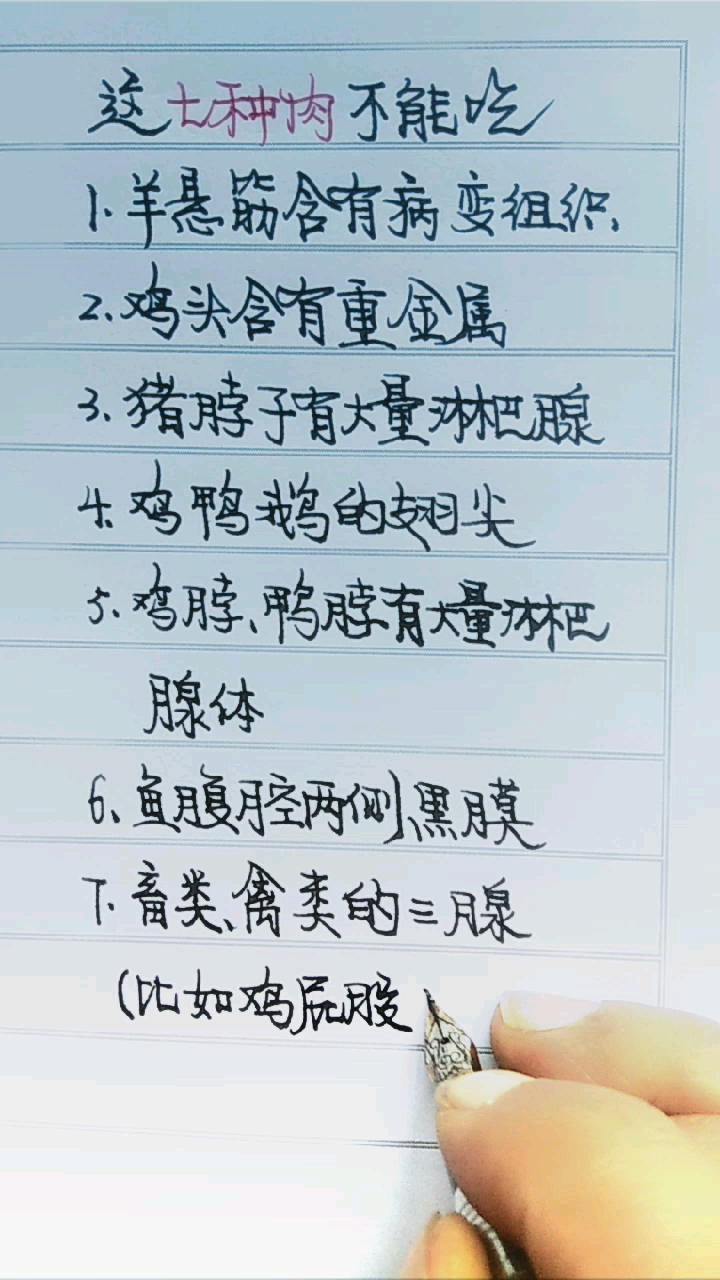 这七种肉不能吃
1.羊悬筋含有病变组织.
2.鸡头含有重金属
3.猪脖子有大量淋杷腺
4.鸡鸭鹅的翅尖
5.鸡脖、鸭脖有大量淋杷
腺体
6、鱼腹腔两侧黑膜
7.畜类、禽类的三腺
(比如鸡屁股